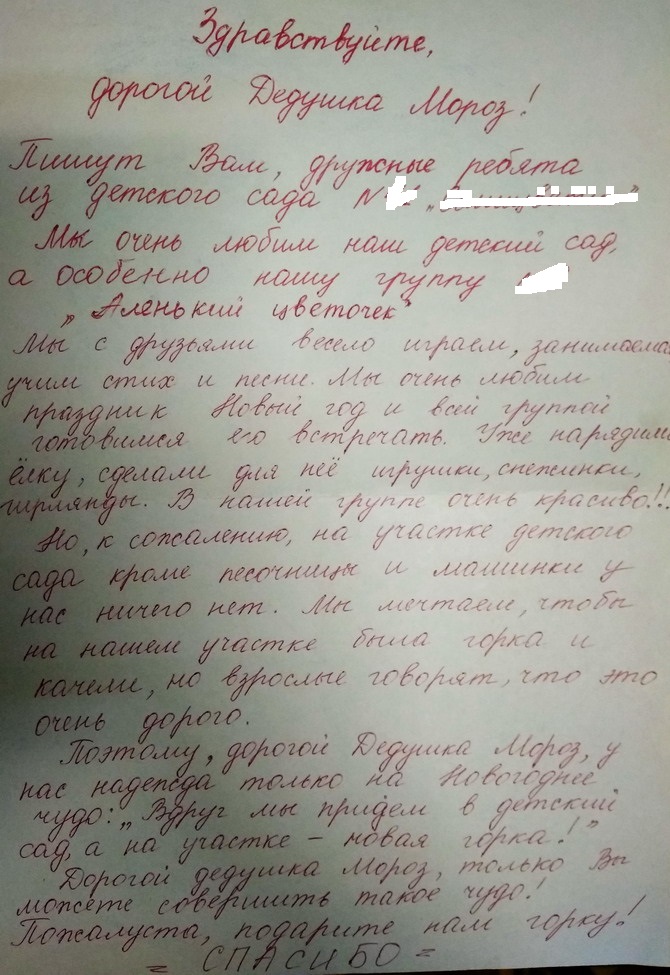 Здравствуйте,
дорогой Дедушка Мороз!
Пишут Вам, дружные ребята
из детского сада №
Мы очень любим наш детский сад,
а особенно нашу группу
„Аленький цветочек"
Мы с друзьями весело играем, занимаемся
учим стих и песни. Мы очень любим
праздник Новый год и всей группой
готовимся его встречать. Уже нарядили
ёлку, сделали для неё игрушки, снежинки,
гирлянды. В нашей группе очень красиво!!!
Но, к сожалению, на участке детского
сада кроме песочницы и машинки у
нас ничего нет. Мы мечтаем, чтобы
на нашем участке была горка и
качели, но взрослые говорят, что это
очень дорого.
Поэтому, дорогой Дедушка Мороз, у
нас надежда только на Новогоднее
чудо: „Вдруг мы придём в детский
сад, а на участке – новая горка!"
Дорогой дедушка Мороз, только Вы
можете совершить такое чудо!
Пожалуста, подарите нам горку!
= СПАСИБО =